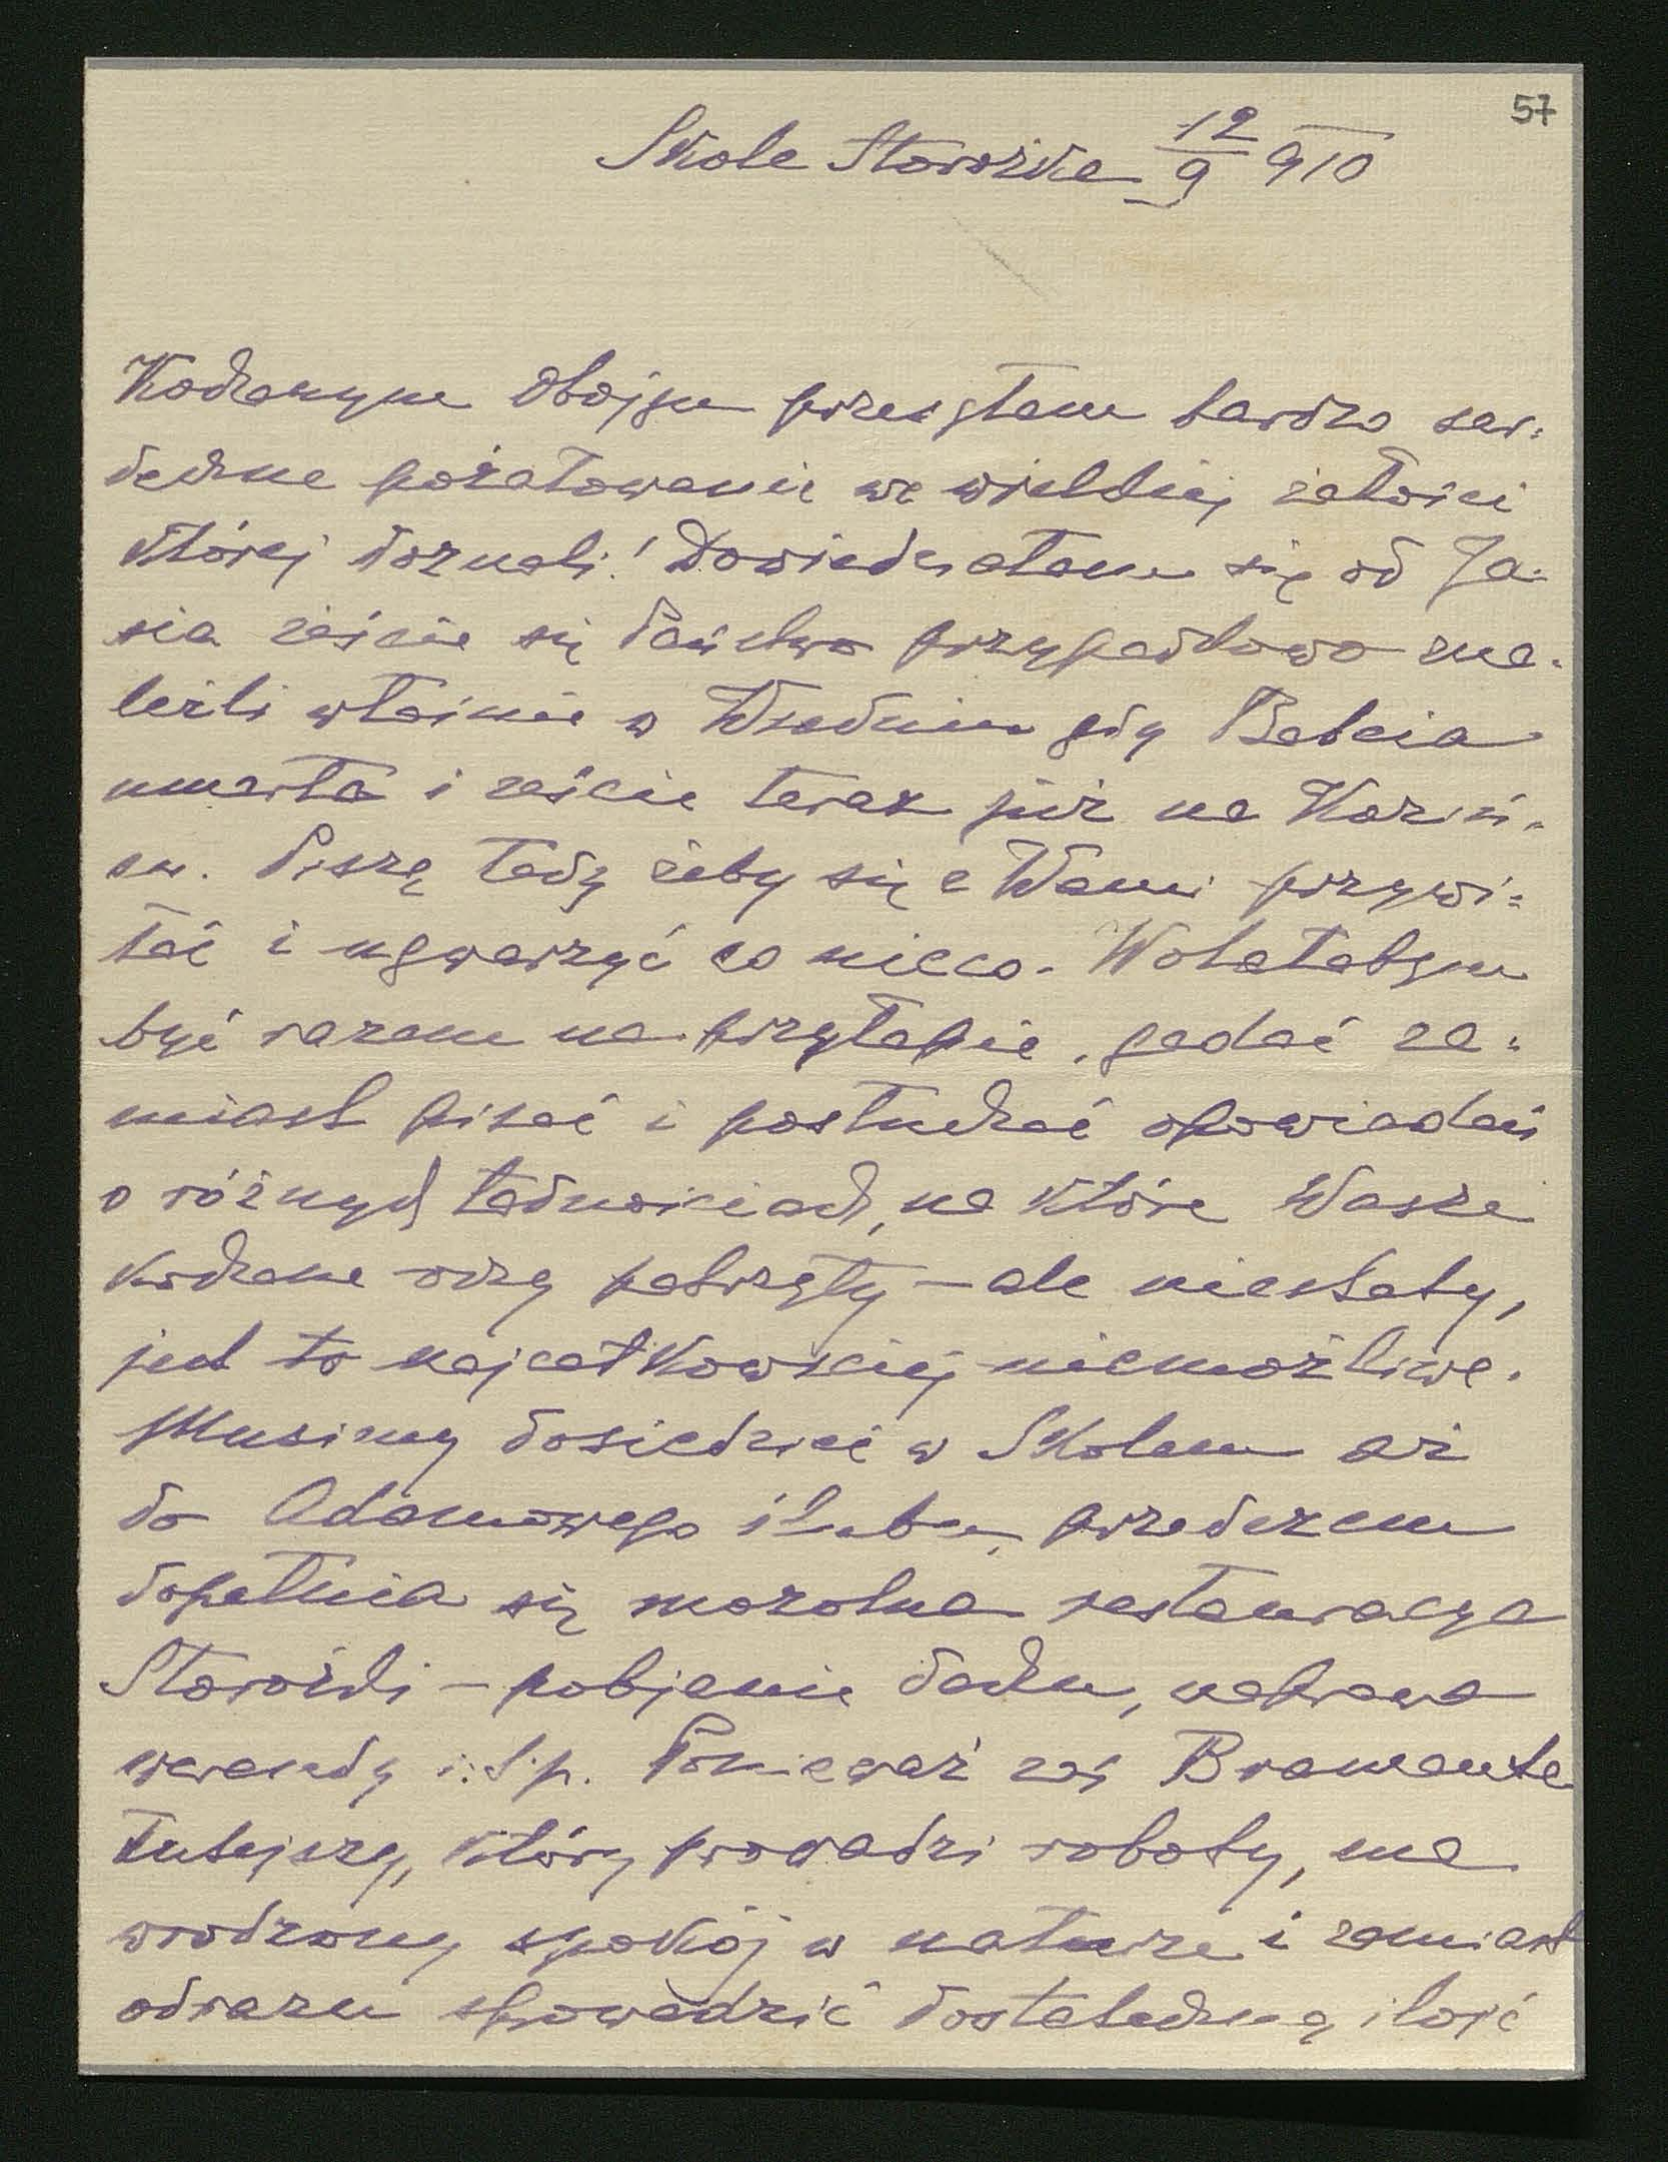 57
Skole Storożka 12/9 910
Kochanym Obojgu przesyłam bardzo ser=
deczne pożałowanie we wielkiej żałości
której doznali! Dowiedziałam się od Ja=
sia żeście się Państwo przypadkowo zna=
leźli właśnie w Wiedniu gdy Babcia
umarła i żeście teraz już na Koziń=
cu. Piszę tedy żeby się z Wami przywi=
tać i ugwarzyć co nieco. Wolałabym
być razem na przyłapie, gadać za=
miast pisać i posłuchać opowiadań
o różnych ładnościach, na które Wasze
kochane oczy patrzyły – ale niestety,
jest to najcałkowiciej niemożliwe.
Musimy dosiedzieć w Skolem aż
do Adamowego ślubu, przedczem
dopełnia się mozolna restauracya
Storożki – pobijanie dachu, naprawa
werandy i.t.p. Ponieważ zaś Bramante
tutejszy, który prowadzi roboty, ma
wrodzony spokój w naturze i zamiast
odrazu spowadzić dostateczną ilość